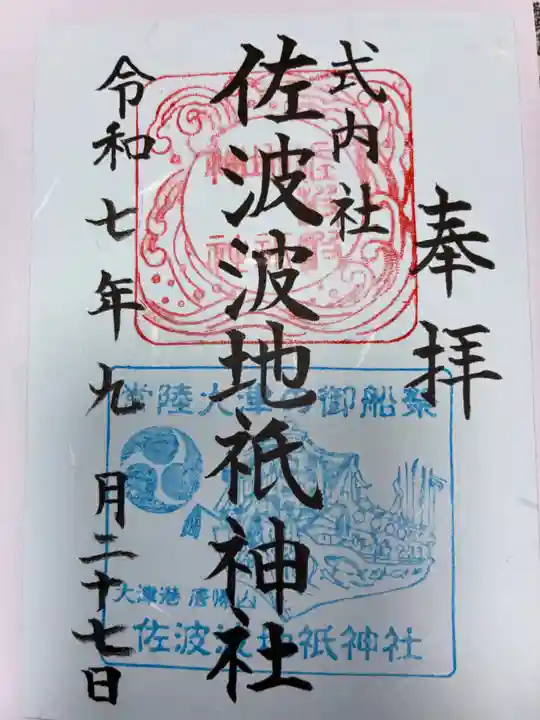 奉拝
式内社
佐波波地祇神社
令和七年九月二十七日
常陸大津の御船祭
大津港 唐帰山
佐波波地祇神社